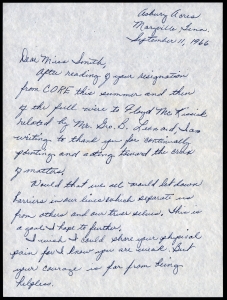 Asbury Acres
Maryville Tenn.
September 11, 1966
Dear Miss Smith,
After reading of your resignation
from CORE this summer and then
of the full wire to Floyd McKissick
related by Mr. Geo. B. I am
writing to thank you for continually
pointing and acting toward the crux
of matters.
Would that we all would let down
barriers in our lives which separate us
from others and our true selves. This is
a goal I hope to further.
I wish I could share your physical
pain for I know you are weak. But
your courage is far from being
helpless.